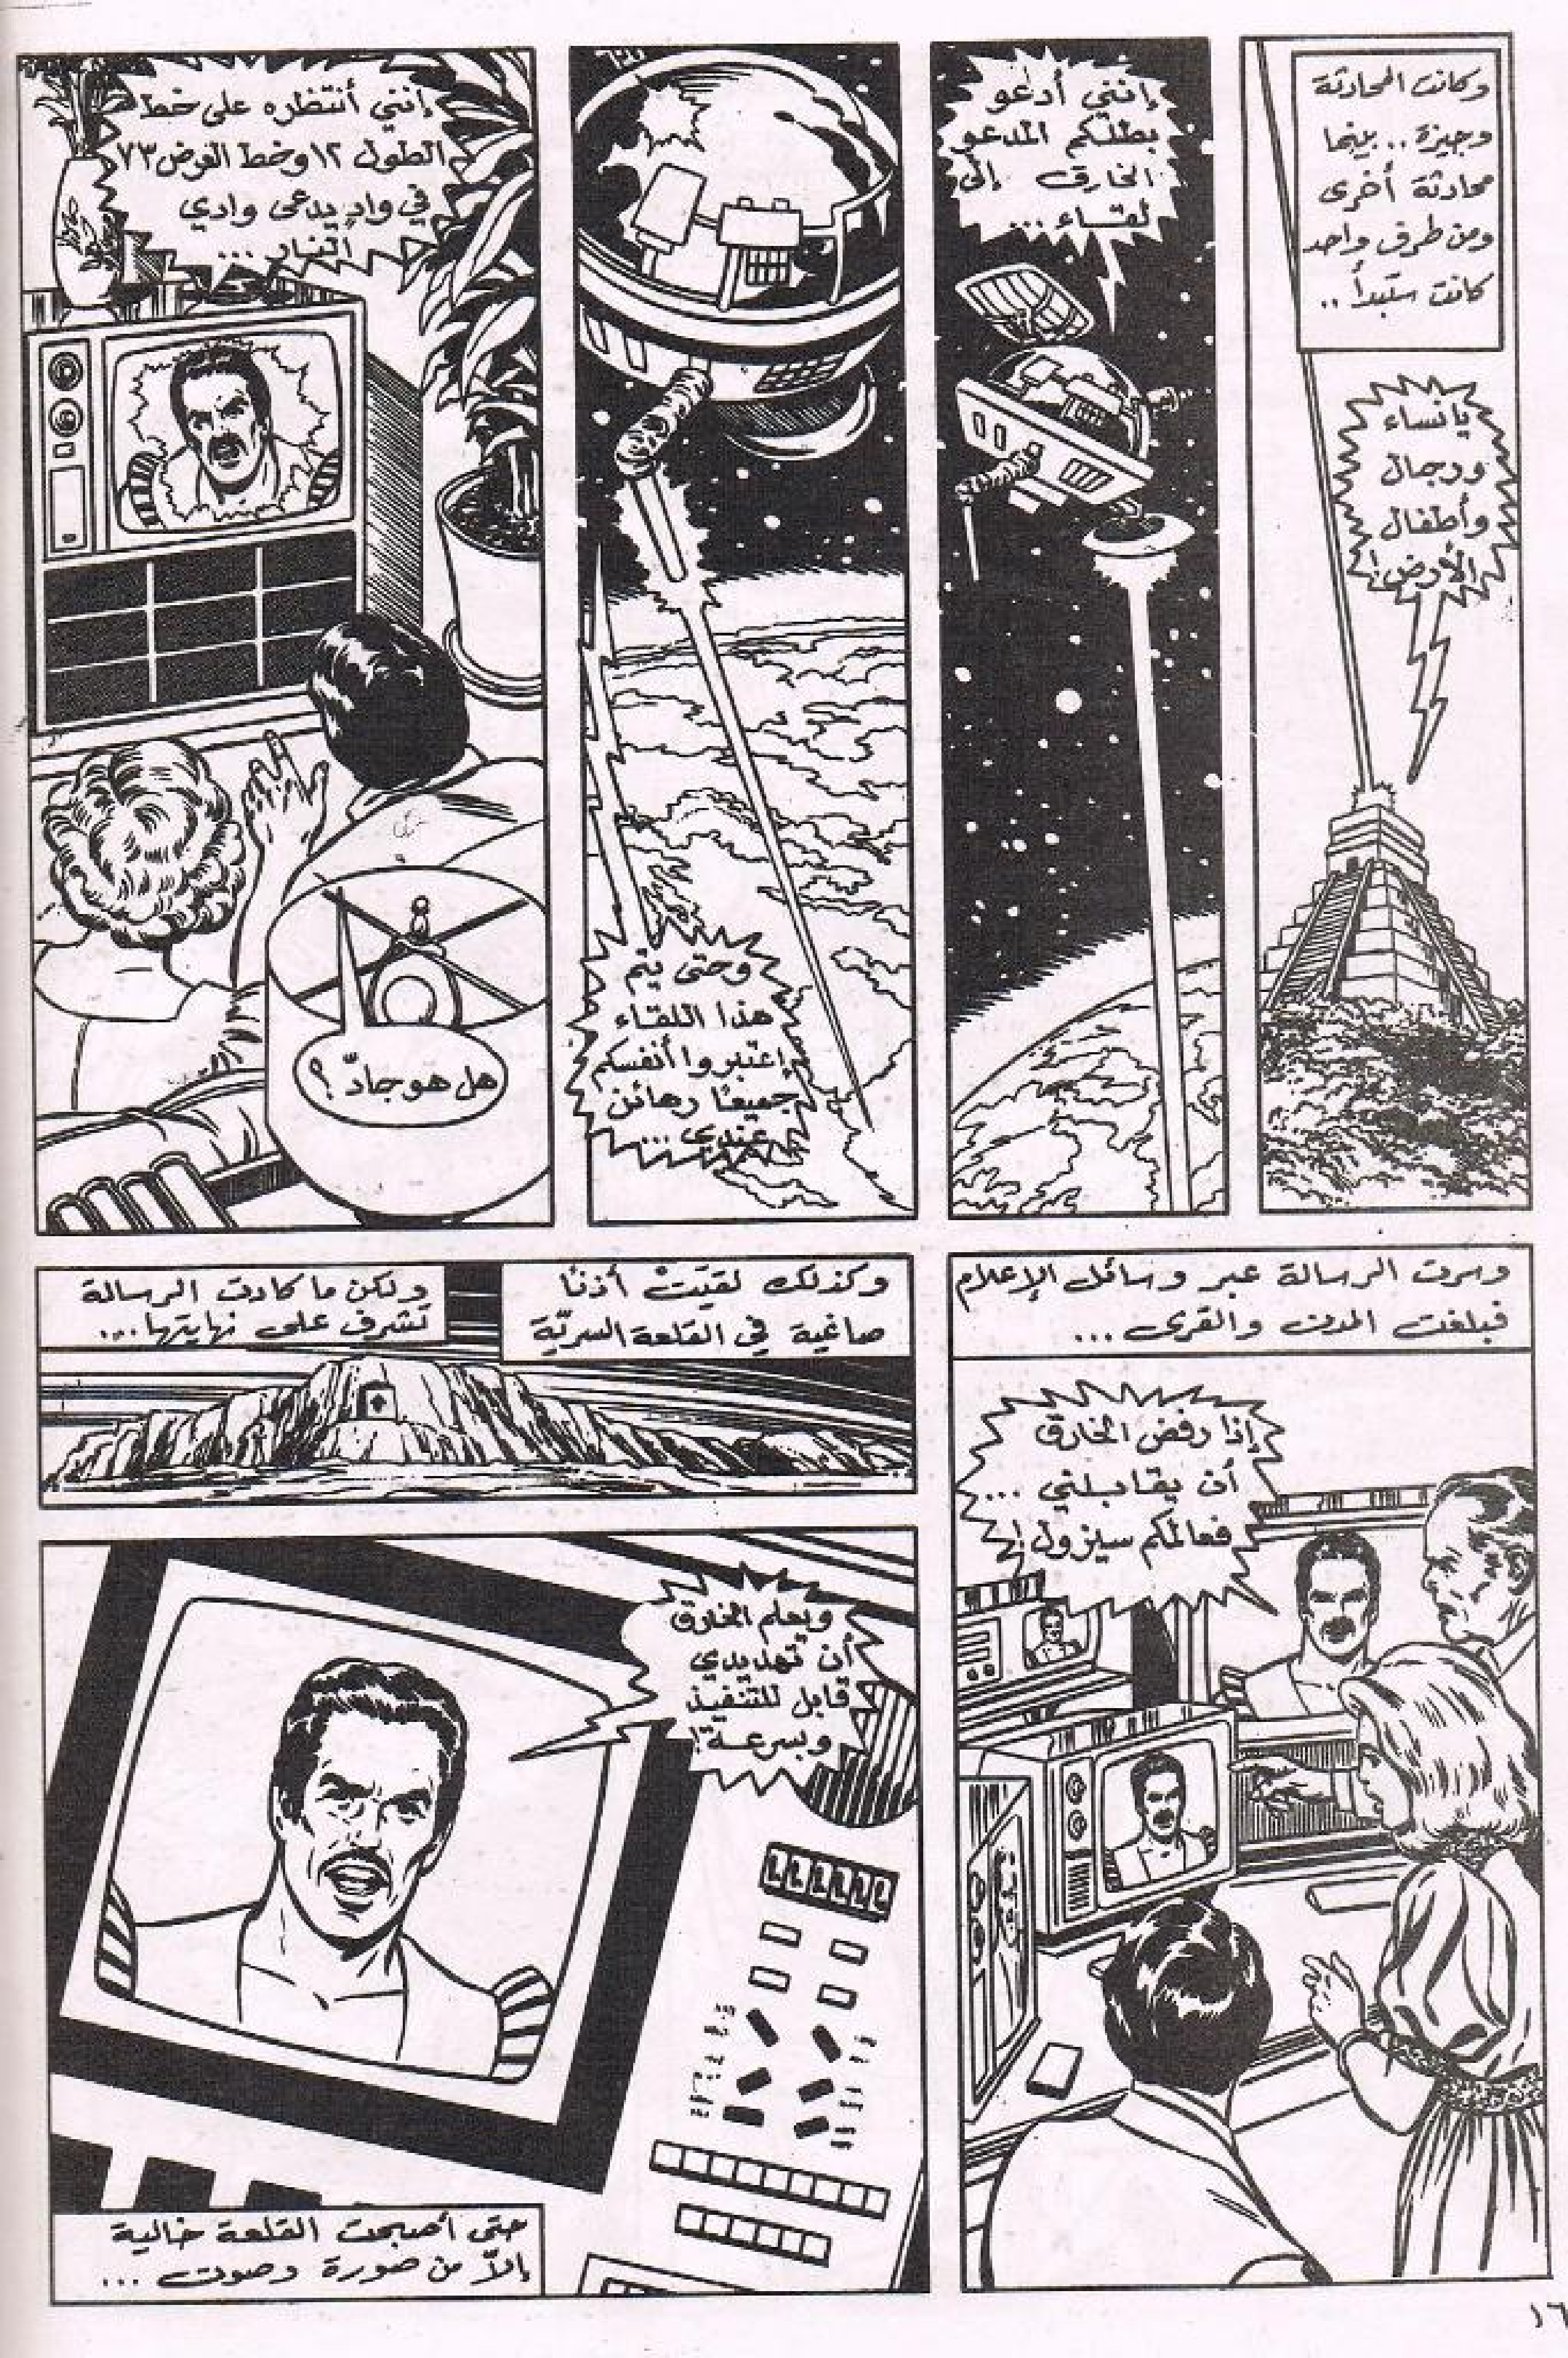 وكانت المحادثة
وجيزة.. بينما
محادثة أخرى
ومن طرف واحد
كانت ستبدأ..
يا نساء
ورجال
وأطفال
الأرض!
إنني أدعو
بطلكم المدعو
الخارق إلى
لقاء...
وحتى يتم
هذا اللقاء
إعتبروا أنفسكم
جميعًا رهائن
عندي...
إنني أنتظره على خط
الطول ١٢ وخط العرض ٧٣
في وادٍ يدعى وادي
النار...
هل هو جادّ؟
وسرت الرسالة عبر وسائل الإعلام
فبلغت المدن والقرى...
إذا رفض الخارق
أن يقابلني...
فعالمكم سيزول!
وكذلك لقيَتْ أذنًا
صاغية في القلعة السريّة
ولكن ما كادت الرسالة
تشرف على نهايتها...
ويعلم الخارق
أن تهديدي
قابل للتنفيذ
وبسرعة!
حتى أصبحت القلعة خالية
إلاّ من صورة وصوت...
١٦